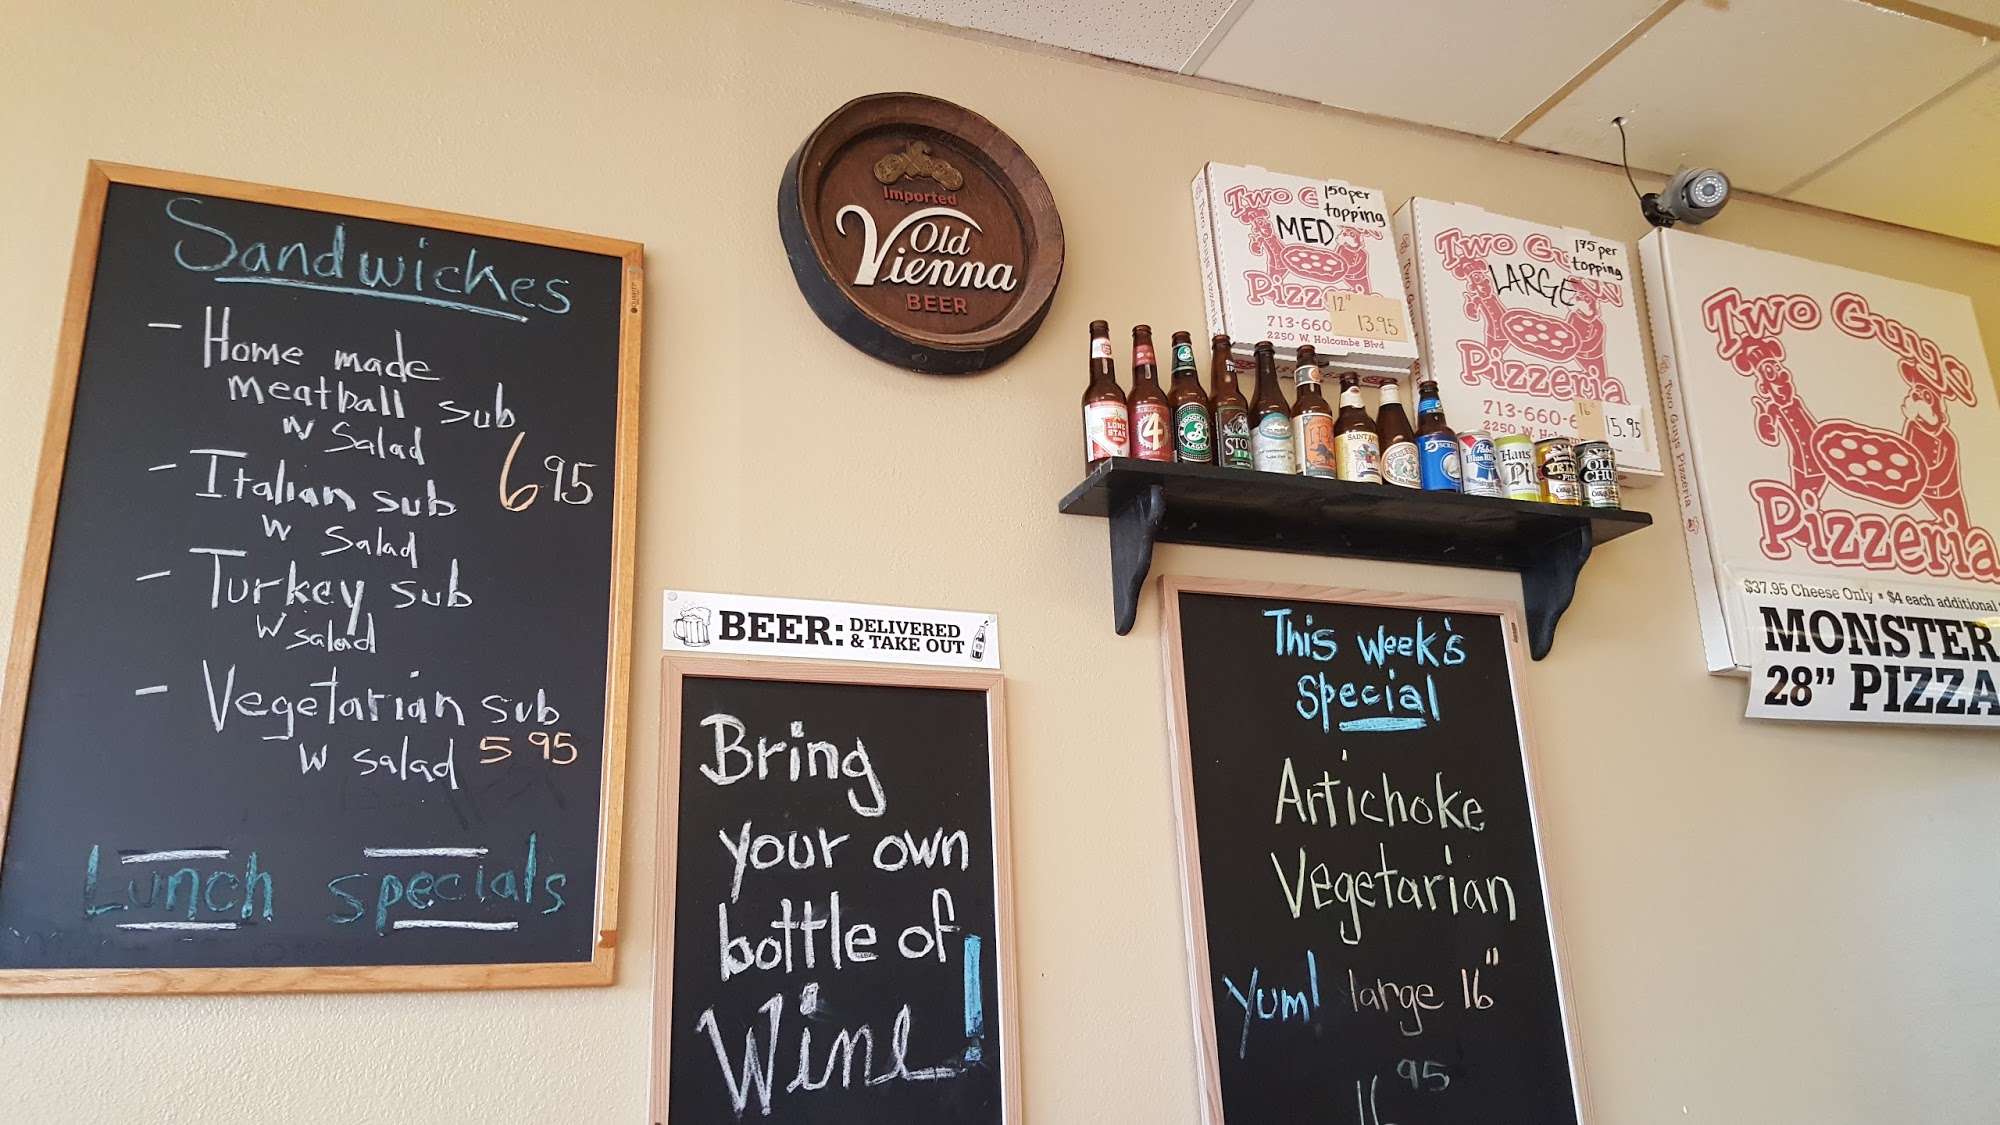 Sandwiches
- Home made
meatball sub
w salad
6 95
- Italian sub
w salad
- Turkey sub
w salad
- Vegetarian sub
w salad 5 95
Lunch specials
Imported
Old
Vienna
BEER
BEER: DELIVERED
& TAKE OUT
Bring
your own
bottle of
Wine!
MED
150 per
topping
12"
13.95
713-660
2250 W. Holcombe Blvd
Two Guys Pizzeria
LARGE
175 per
topping
Pizzeria
713-660-6
2250 W. Holc
16"
15.95
Two Guys Pizzeria
Two Guys
Pizzeria
$37.95 Cheese Only • $4 each additional
MONSTER
28" PIZZA
LONE
STAR
4
This week's
special
Artichoke
Vegetarian
Yum! large 16"
16 95